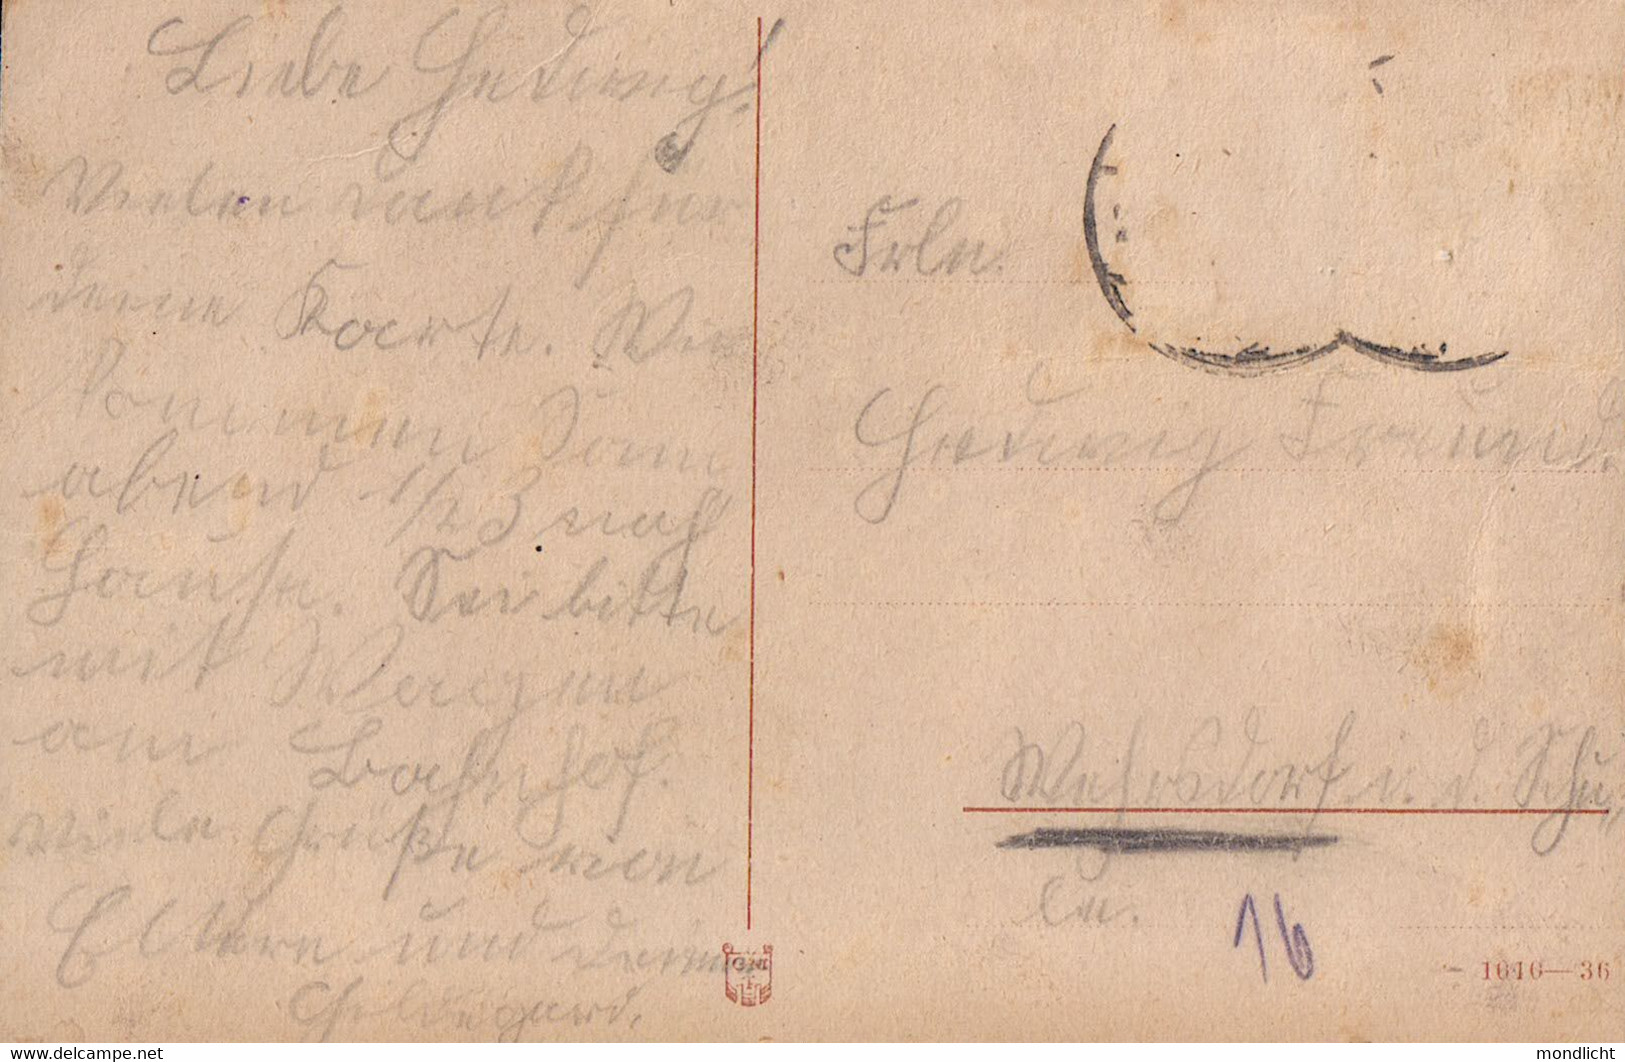 Liebe Hedwig!
Vielen Dank für
deine Karte. Wir
kommen Sonn
abend 1/2 3 nach
Hause. Sei bitte
mit Wagen
am Bahnhof.
Viele Grüße von
Eltern und deiner
Hildegard.
Frln.
Hedwig Freund.
Wehrsdorf i. d. Schu„
le.
16
1616—36
delcampe.net
mondlicht